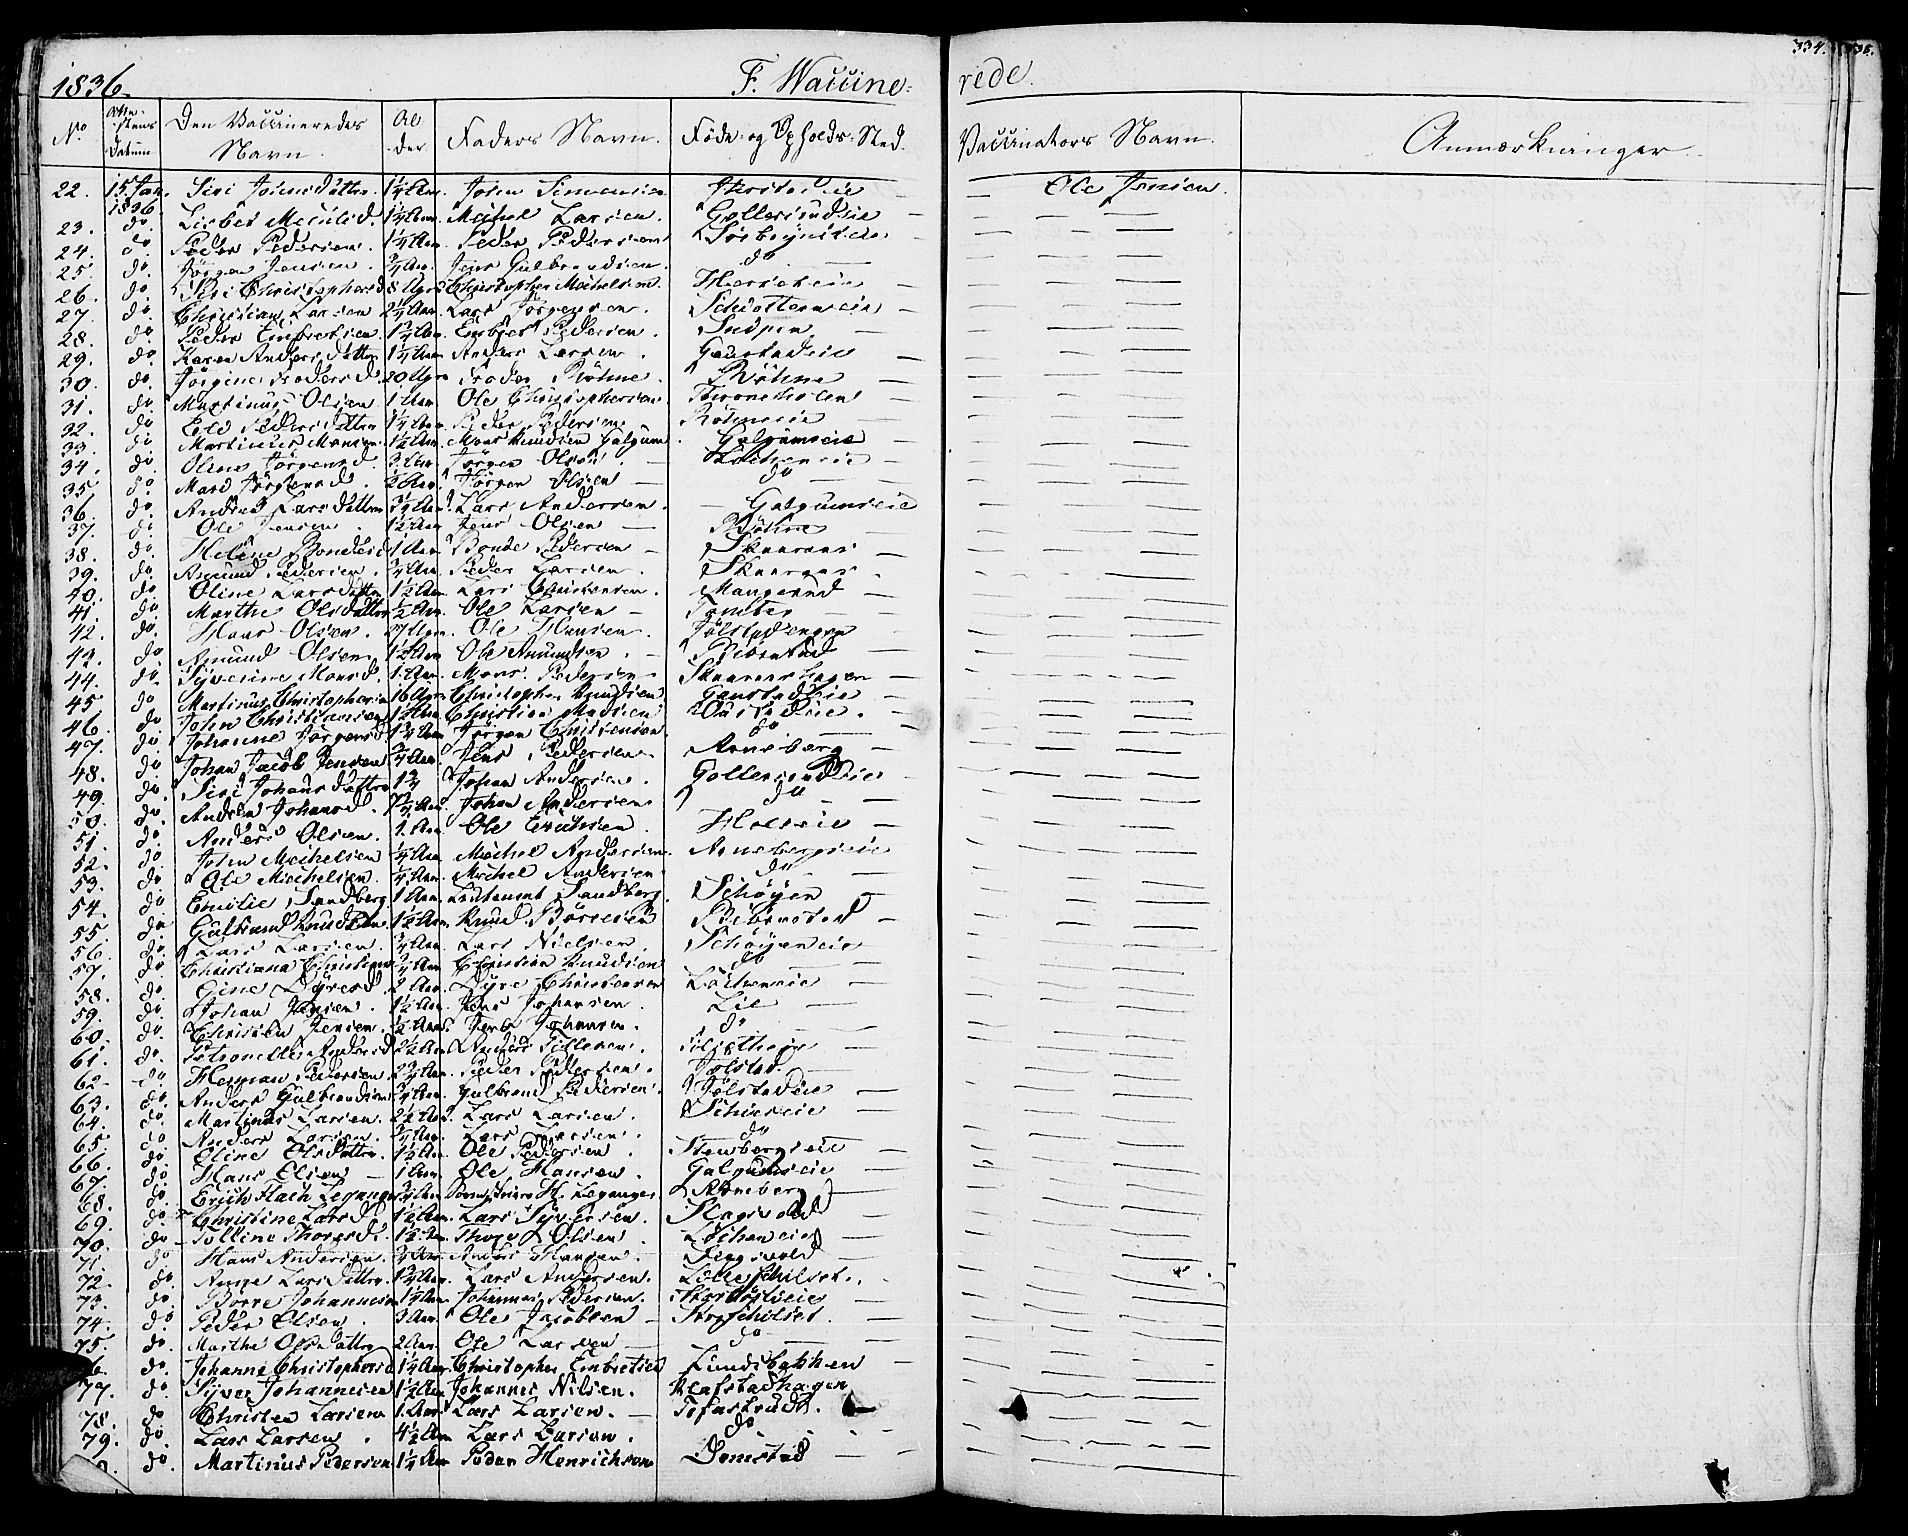 334.
1836. F. Waccine= rede.
No Atte-stens Datum Den Vaccineredes Navn. Al-der Faders Navn. Føde- og Opholds-Sted. Vaccinators Navn. Anmærkninger.
22. 15. Jan. 1836. Siri Johnsdatter. 1 1/4 Aar. John Simensen Ole Jensen.
23. do. Lisbet Michelsd. 1 1/4 Aar. Michel Larsen. Gollerudeie
24. do. Peder Pedersen. 1 1/4 Aar. Peder Pedersen
25. do. Jørgen Jensen. 3/4 Aar. Jens Gulbrandsen. do
26. do. Siri Christophersd. 8 Uger Christopher Michelsen.
27. do. Christian Larsen 2 1/4 Aar. Lars Jørgensen. Schotterudeie
28. do. Peder Embretsen Embret Pedersen.
29. do. Karen Andersdatter 1 1/4 Aar. Anders Larsen. Gaustadeie
30. do. Jørgine Frodersd. 20 Uger Froder Røhne. Røhne
31. do. Martinus Olsen 1 Aar Ole Christophersen Throneholen
32. do. Eli Pedersdatter 1/4 Aar. Peder Pedersen. Røhneeie
33. do. Martinus Monsen. 1 1/2 Aar. Mons Knudsen Galgum. Galgumseie
34. do. Oline Jørgensd. 3. Aar. Jørgen Olsen. Løcheneie
35. do. Mari Jørgensd. 1/2 Aar. Jørgen Olsen do
36. do. Andrea Larsdatter 3/4 Aar. Lars Andersen. Galgumseie
37. do. Ole Jensen. 1 1/2 Aar Jens Olsen Røhne
38. do. Heline Bondesd. 1 Aar. Bonde Pedersen Skaarans
39. do. Amund Pedersen. 3/4 Aar. Peder Larsen. Skaarans.
40. do. Oline Larsdatter 1 1/2 Aar. Lars Christensen. Mangerud
41. do. Marthe Olsdatter 1/2 Aar. Ole Larsen Tomter
42. do. Hans Olsen. 27 Uger. Ole Hansen. Jølstadengen
43. do. Amund Olsen. 1 1/2 Aar Ole Amundsen. Ribinstad
44. do. Syverine Monsd. 1. Aar. Mons. Pedersen Skaaranshagen
45 do Martinus Christophersen 16 Uger Christopher Knudsen Gaustadeie
46. do. John Christiansen 1 1/2 Aar Christian Madsen
47. do. Johanne Jørgensd. 1 3/4 Aar. Jørgen Christensen. do
48. do. Johan Jacob Jensen 3/4 Aar. Jens Pedersen Arneberg
49. do. Siri Johansdatter 1 3/4 Johan Andersen. Gollerudeie
50. do. Andrea Johansd. 7 3/4 Aar. Johan Andersen do
51. do. Anders Olsen. 1. Aar. Ole Erichsen. Holseie
52. do. John Michelsen 1/4 Aar. Michel Andersen. Arnebergseie
53. do. Ole Michelsen. 1/4 Aar. Michel Andersen do
54. do Emilie Sandberg 1 Aar. Leutenant Sandberg Schøyen
55 do Gulbrand Knudsen 1 1/2 Aar. Knud Børresen Ribinstad
56. do. Lars Larsen. 3/4 Aar. Lars Nielsen. Schøyeneie
57. do. Christiana Christians 3/4 Aar Christian Knudsen do
58. do. Gine Dyresd. 2 Aar. Dyre Christensen Løcheneie
59. do. Johan Jensen. 1 1/2 Aar. Jens Johansen. Lie
60. do. Christen Jensen. 1/2 Aar. Jens Johansen. do
61. do. Petronelle Andersd. 2 1/2 Aar. Anders
62. do. Herman Pedersen. 2 3/4 Aar. Peder Pedersen. Jølstad.
63. do. Anders Gulbrandsen 3/4 Aar. Gulbrand Pedersen. Jølstadeie
64. do. Martinus Larsen. 2 1/2 Aar. Lars Larsen.
65 do Anders Larsen. 3/4 Aar. Lars Larsen. do
66. do. Eline Olsdatter. 1 1/2 Aar. Ole Pedersen. Stensbergseie
67. do. Hans Olsen 1 Aar. Ole Hansen. Galgumseie
68. do. Erich Flach Leganger 3/4 Aar. H. Leganger. Arneberg
69. do. Christine Larsd. 1 1/2 Aar. Lars Syversen. Slagsvold
70. do. Polline Thoresd. 1 1/2 Aar. Thore Olsen. Løcheneie
71. do Hans Andersen. 3/4 Aar. Anders Hansen. Seigsvold
72. do. Anne Larsdatter. 1 3/4 Aar. Lars Andersen.
73. do. Børre Johannesen 1 1/4 Aar. Johannes Pedersen.
74. do. Peder Olsen. 3 Aar. Ole Jacobsen
75. do. Marthe Olsdatter 2 Aar. Ole Larsen do
76. do. Johanne Christophersd. 1 1/4 Aar. Christopher Embretsen Lundsbakken
77. do. Syver Johannesen 1 1/2 Aar. Johannes Nilsen. Klafstadhagen
78. do Christen Larsen 1. Aar Lars Larsen. Tofastrud.
79. do Lars Larsen. 4 1/2 Aar Lars Larsen. do
do. Martinus Pedersen 1 1/4 Aar Peder Henrichsen Domstad